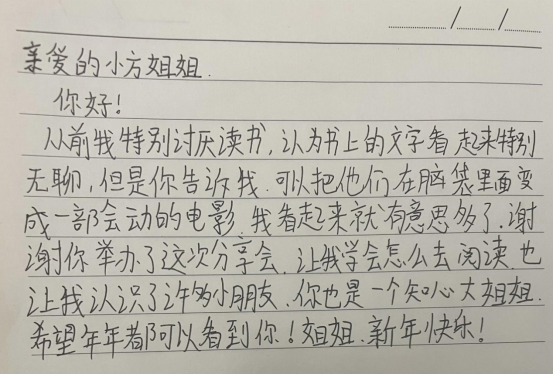 亲爱的小方姐姐.
你好!
从前我特别讨厌读书,认为书上的文字看起来特别
无聊,但是你告诉我.可以把他们在脑袋里面变
成一部会动的电影.我看起来就有意思多了.谢
谢你举办了这次分享会.让我学会怎么去阅读.也
让我认识了许多小朋友.你也是一个知心大姐姐.
希望年年都可以看到你!姐姐.新年快乐!